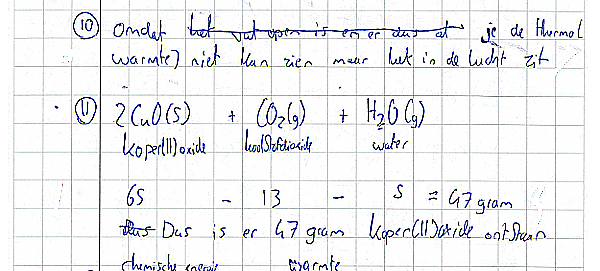 10 Omdat het vat open is en er dus at je de thermo(
warmte) niet kan zien maar het in de lucht zit
11 2CuO(s) + CO₂(g) + H₂O(g)
koper(II)oxide koolstofdioxide water
65 - 13 - 5 = 47 gram
dus Dus is er 47 gram koper(II)oxide ontstaan
chemische energie warmte